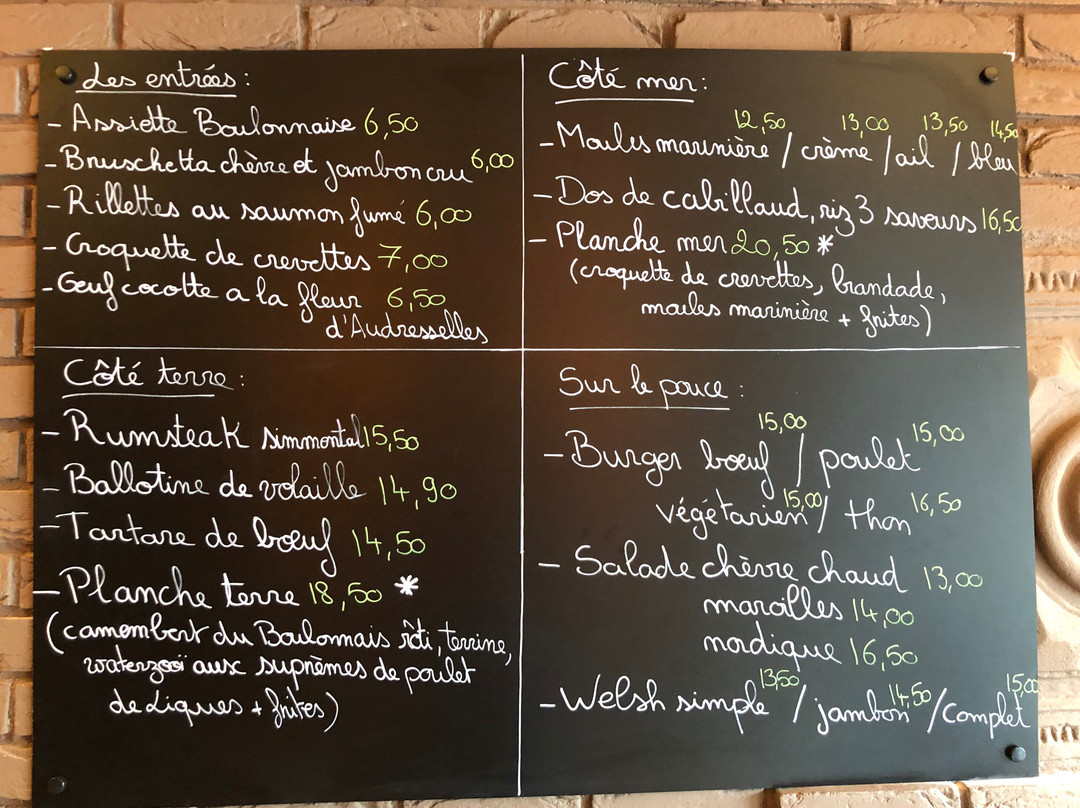 Les entrées :
- Assiette Boulonnaise 6,50
- Bruschetta chèvre et jambon cru 6,00
- Rillettes au saumon fumé 6,00
- Croquette de crevettes 7,00
- Oeuf cocotte a la fleur 6,50
d'Audresselles
Côté mer :
12,50 13,00 13,50 14,50
- Moules marinière / crème / ail / bleu
- Dos de cabillaud, riz 3 saveurs 16,50
- Planche mer 20,50 *
(croquette de crevettes, brandade,
moules marinière + frites)
Côté terre :
- Rumsteak simmental 15,50
- Ballotine de volaille 14,90
- Tartare de bœuf 14,50
- Planche terre 18,50 *
(camembert du Boulonnais rôti, terrine,
waterzooï aux suprêmes de poulet
de Liques + frites)
Sur le pouce :
15,00 15,00
- Burger bœuf / poulet
15,00 16,50
végétarien / thon
- Salade chèvre chaud 13,00
maroilles 14,00
nordique 16,50
13,50 14,50 15,00
- Welsh simple / jambon / complet